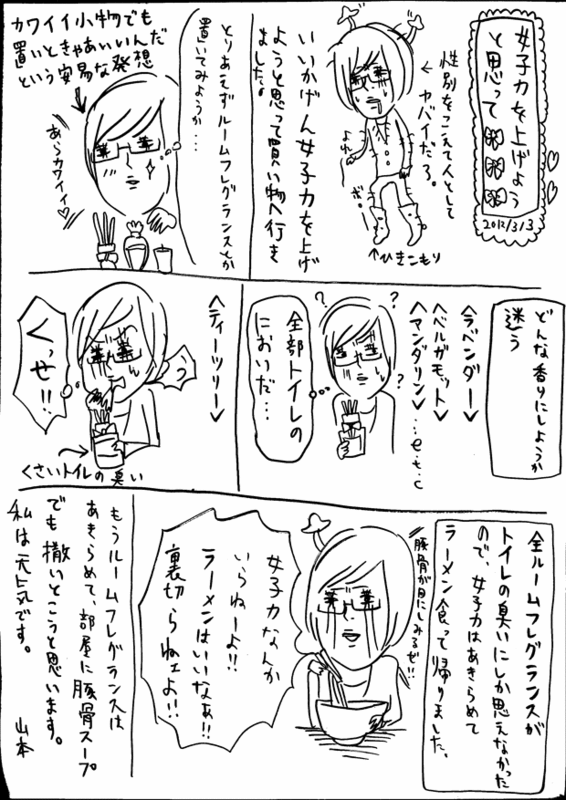 女子力を上げよう
と思って
2012/3/3
性別をこえて人として
ヤバイだろ。
よれ
ボー
ひきこもり
いいかげん女子力を上げ
ようと思って買い物へ行き
ました。
とりあえずルームフレグランスとか
置いてみようか…
カワイイ小物でも
置いときゃあいいんだ
という安易な発想
あらカワイイ♡
どんな香りにしようか
迷う
<ラベンダー>
<ベルガモット>
<マンダリン>
…e.t.c
?
?
?
?
全部トイレの
においだ…
<ティーツリー>
うっ
くっせ!!
くさいトイレの臭い
全ルームフレグランスが
トイレの臭いにしか思えなかった
ので、女子力はあきらめて
ラーメン食って帰りました。
豚骨が目にしみるぜ!!
女子力なんか
いらねーよ!!
ラーメンはいいなぁ!!
裏切らねェよ!!
もうルームフレグランスは
あきらめて、部屋に豚骨スープ
でも撒いとこうと思います。
私は元気です。
山本